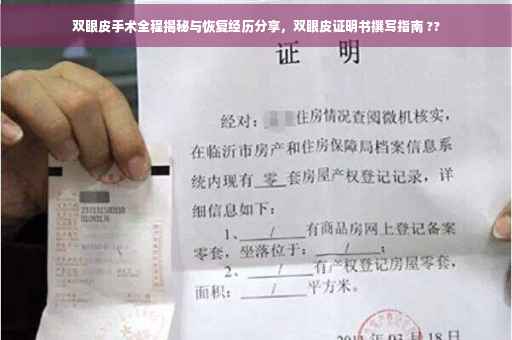 双眼皮手术全程揭秘与恢复经历分享，双眼皮证明书撰写指南 ??
证 明
经对：住房情况查阅微机核实，
在临沂市房产和住房保障局档案信息系
统内现有 零 套房屋产权登记记录，详
细信息如下：
1、 / 有商品房网上登记备案
零套，坐落位于： / ；
2、 / 有产权登记房屋零套，
面积： / 平方米。
03 月 18 日